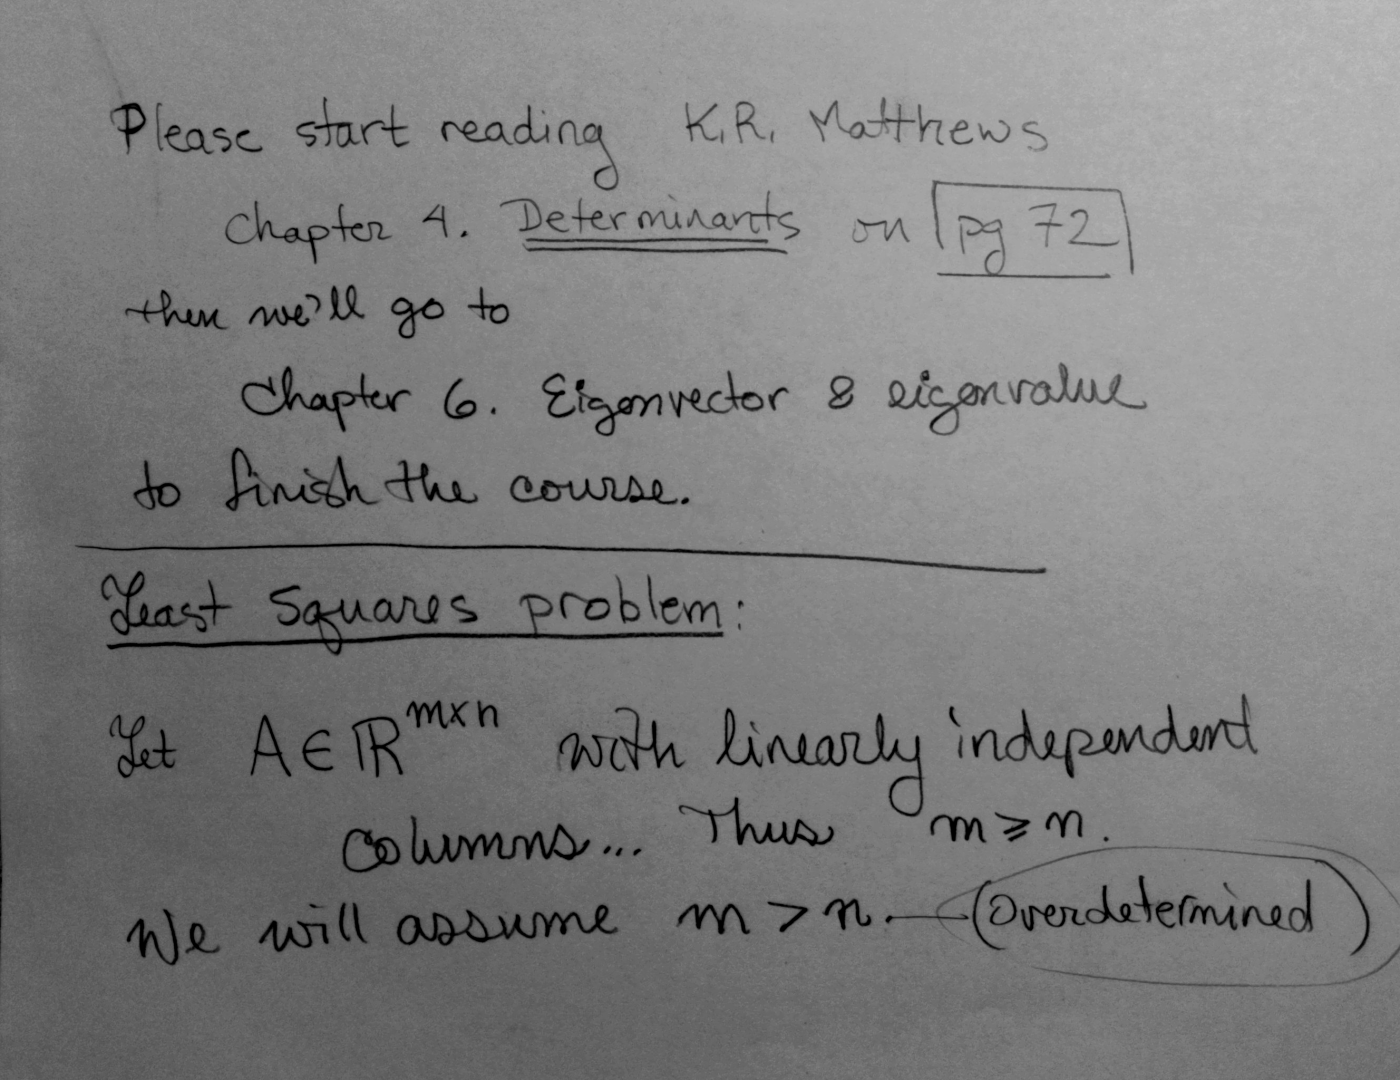 Please start reading K.R. Matthews
Chapter 4. Determinants on pg 72
then we'll go to
Chapter 6. Eigenvector & eigenvalue
to finish the course.
Least Squares problem:
Let A ∈ ℝ^{m×n} with linearly independent
columns... Thus m ⩾ n.
We will assume m > n. — (overdetermined)